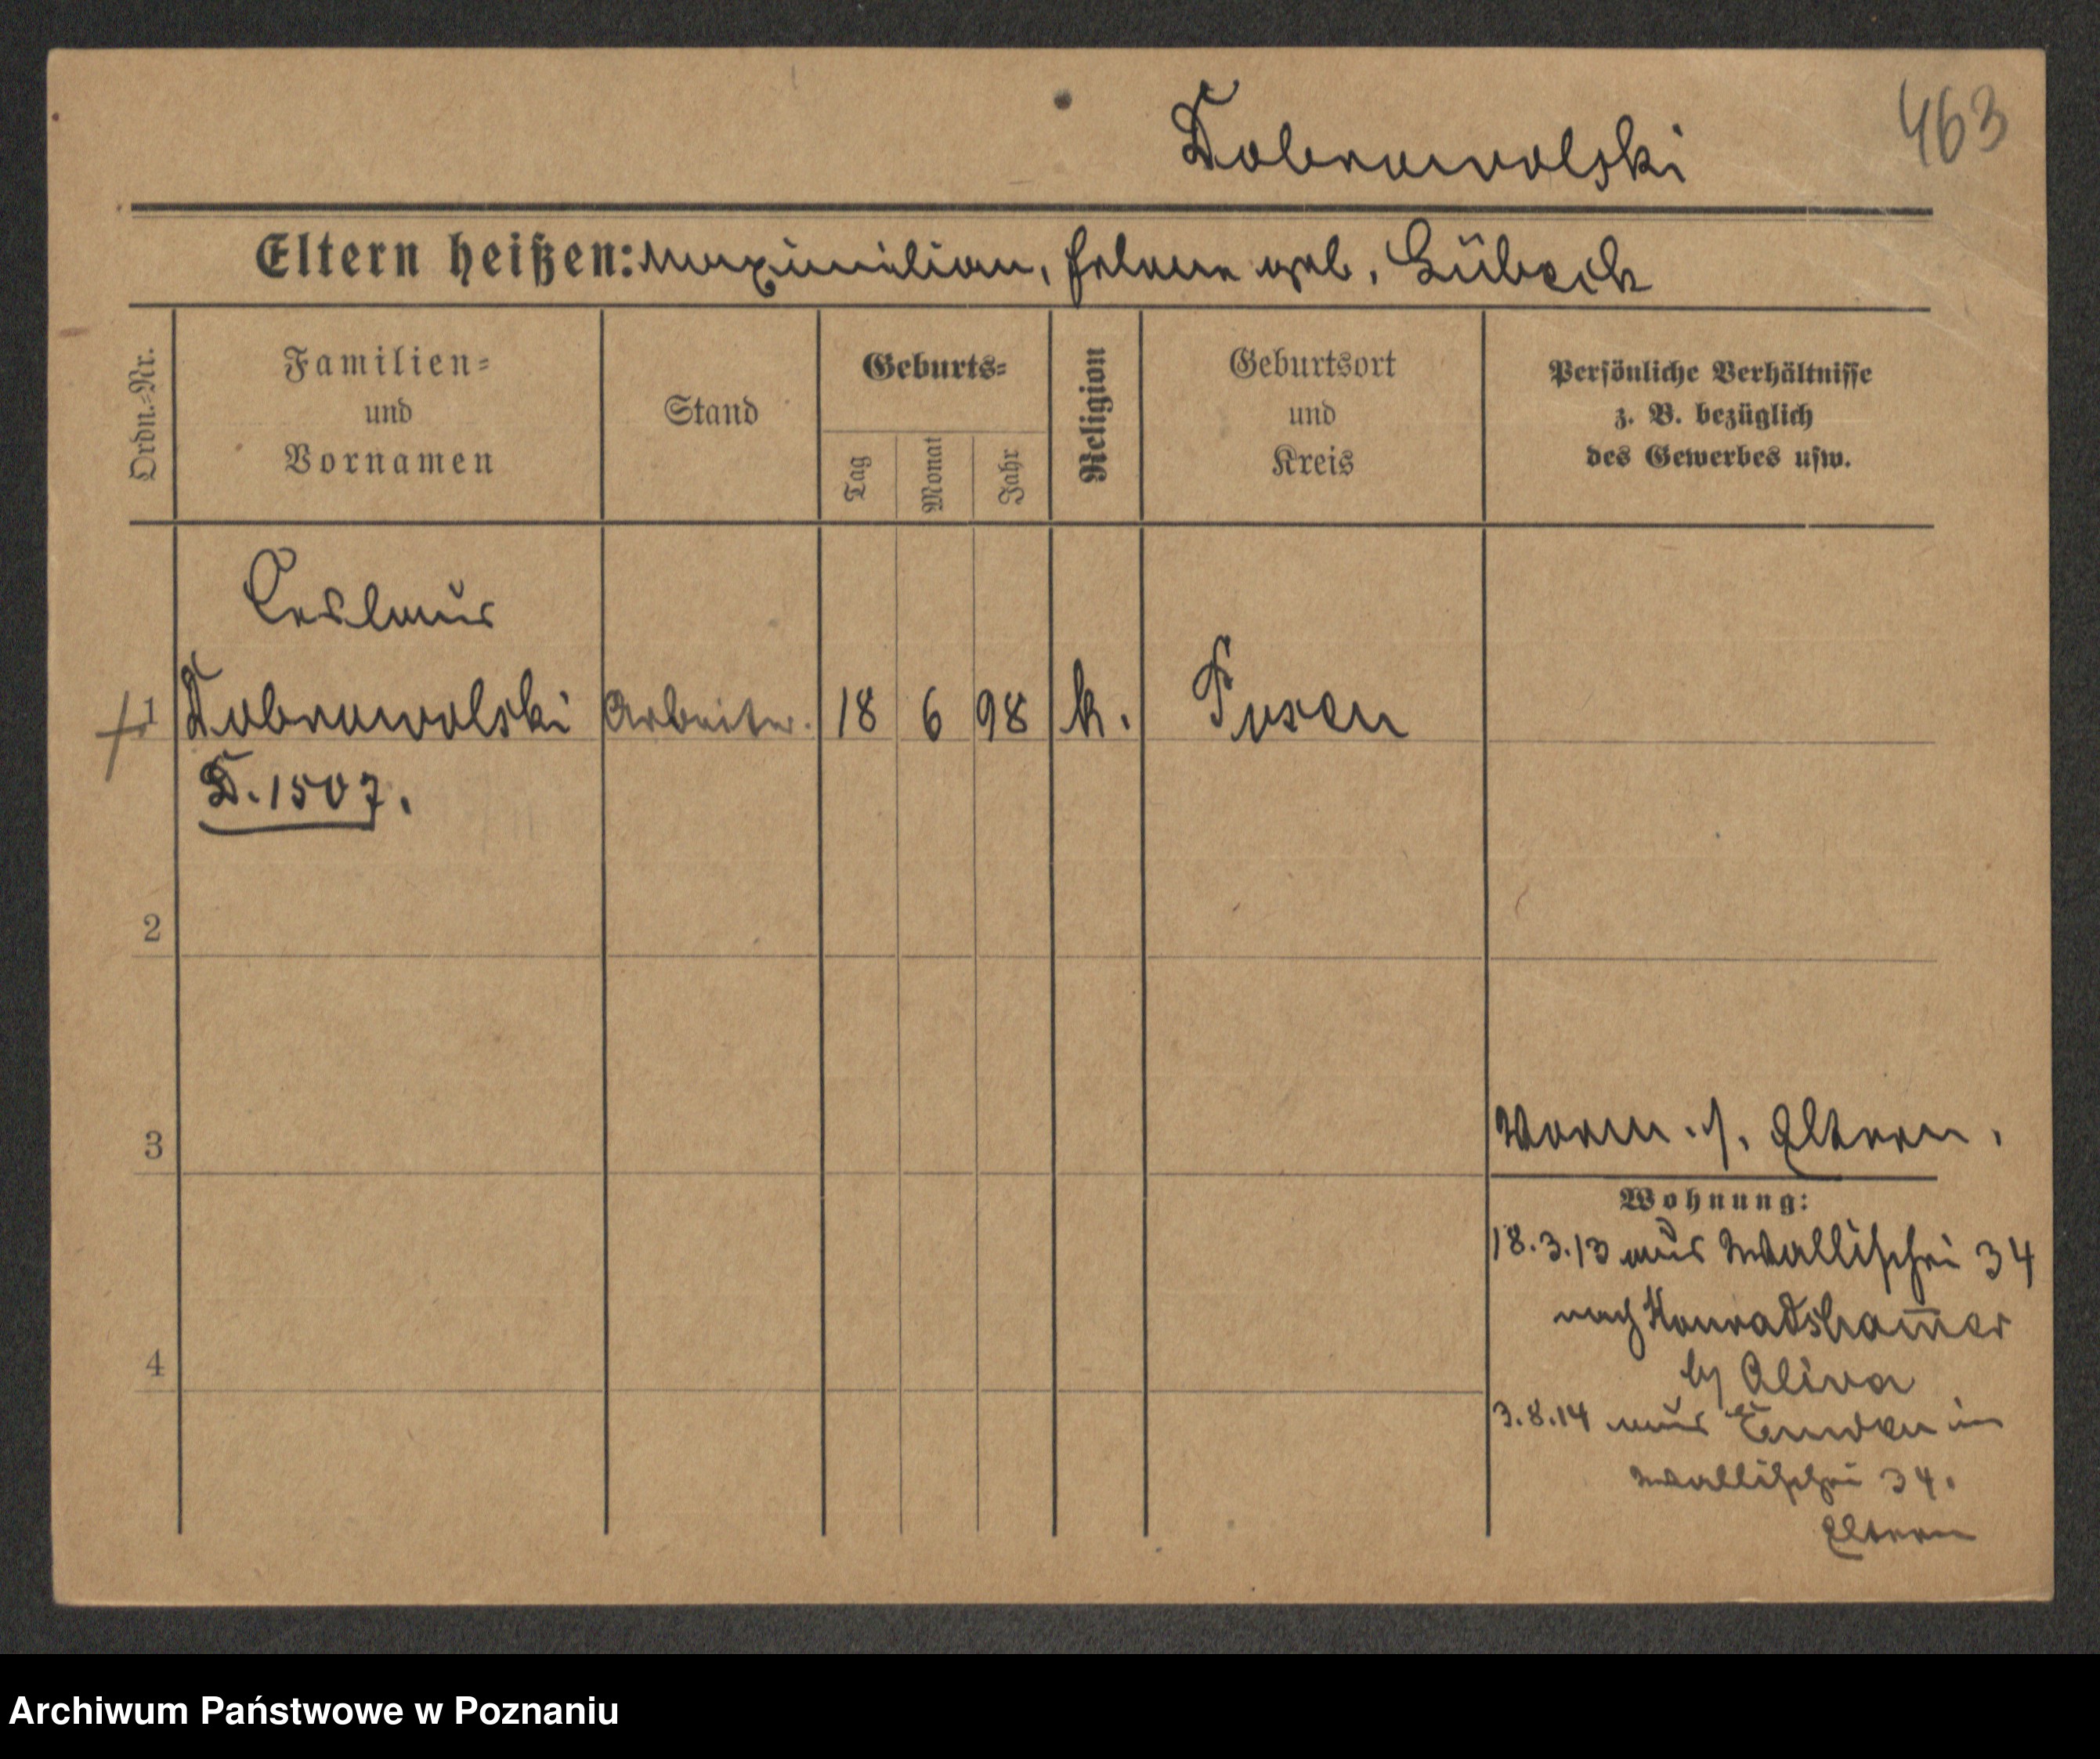 463
Dobrowolski
Eltern heißen: Maximilian, Helene geb. Lübeck
Ordn.-Nr.
Familien-
und
Vornamen
Stand
Geburts-
Tag
Monat
Jahr
Religion
Geburtsort
und
Kreis
Persönliche Verhältnisse
z. B. bezüglich
des Gewerbes usw.
Ceslaus
1 Dobrowolski Arbeiter. 18 6 98 k. Posen
D. 1507.
2
3
Vorm. s. Eltern.
Wohnung:
18.3.13 aus Wallischei 34
nach Konradsham̅er
by Oliva
4
3.8.14 aus Emden in
Wallischei 34.
Eltern
Archiwum Państwowe w Poznaniu